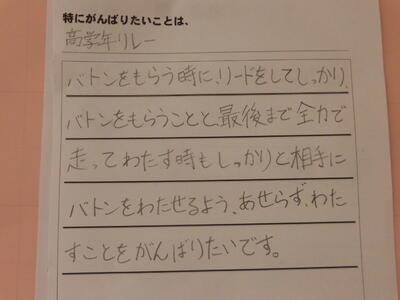 特にがんばりたいことは、
高学年リレー
バトンをもらう時に、リードをしてしっかり、
バトンをもらうことと、最後まで全力で
走ってわたす時もしっかりと相手に
バトンをわたせるよう、あせらず、わた
すことをがんばりたいです。